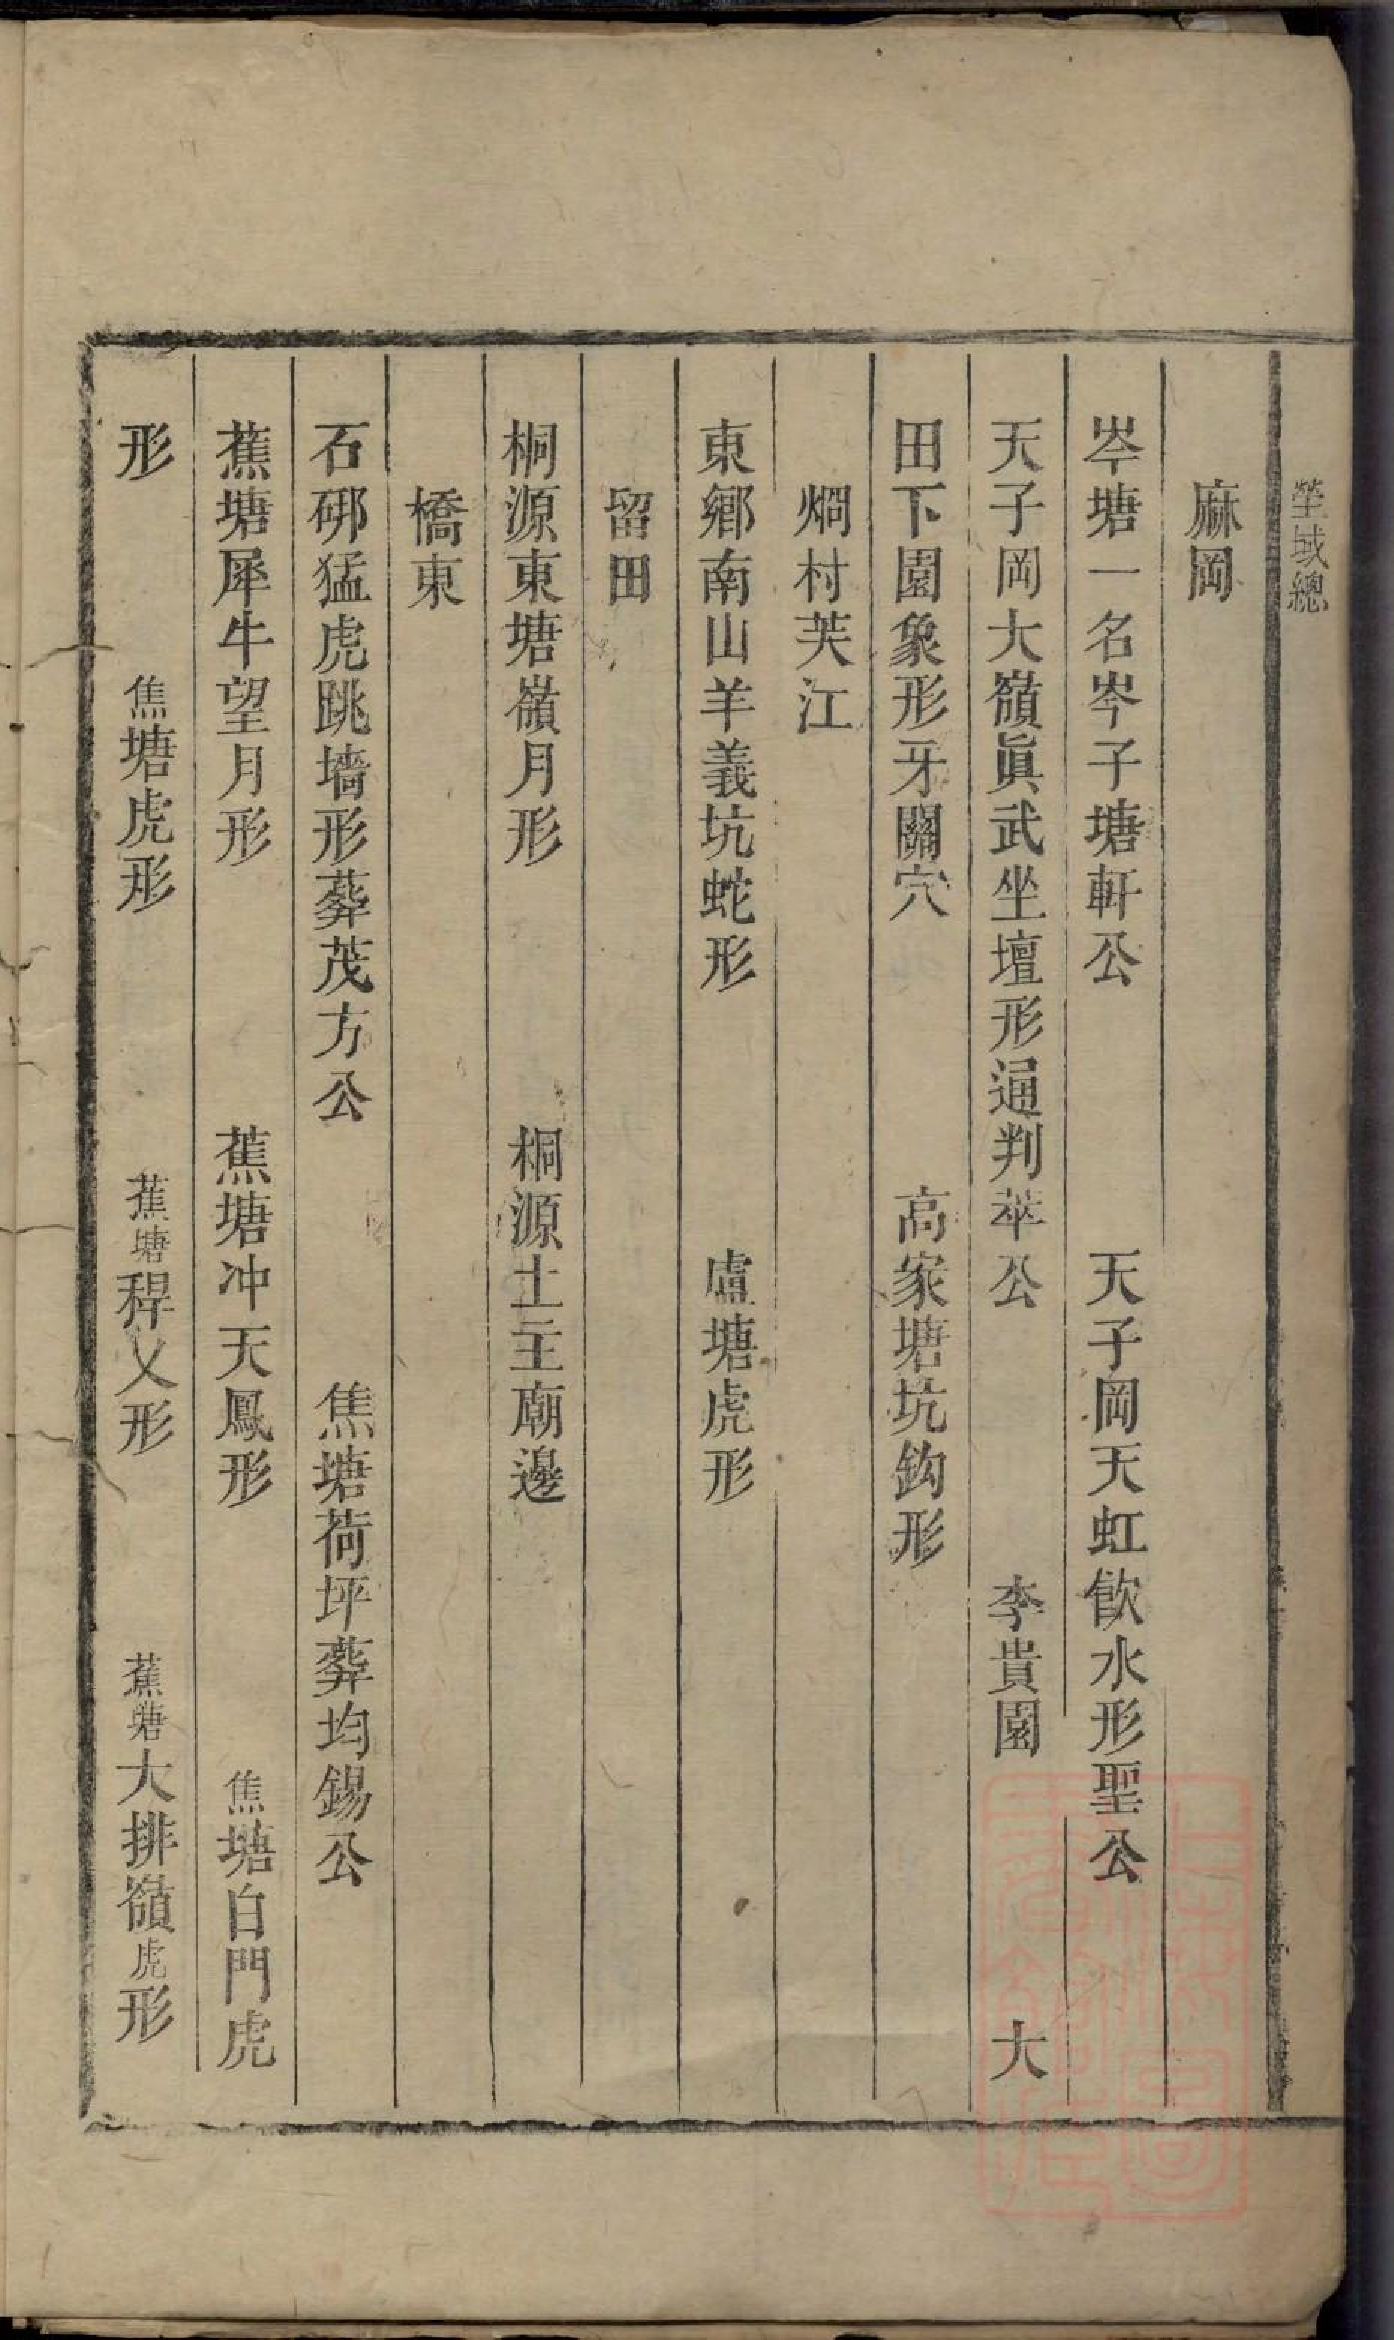 塋域總
麻岡
岑塘一名岑子塘軒公　天子岡天虹飲水形聖公
天子岡大嶺眞武坐壇形通判萃公　李貴園　大
田下園象形牙關穴　高家塘坑鈎形
烱村芙江
東鄉南山羊義坑蛇形　盧塘虎形
留田
桐源東塘嶺月形　桐源土主廟邊
橋東
石硎猛虎跳墻形葬茂方公　焦塘荷坪葬均錫公
蕉塘犀牛望月形　蕉塘冲天鳳形　焦塘白門虎
形　焦塘虎形　蕉塘稈乂形　蕉塘大排嶺虎形